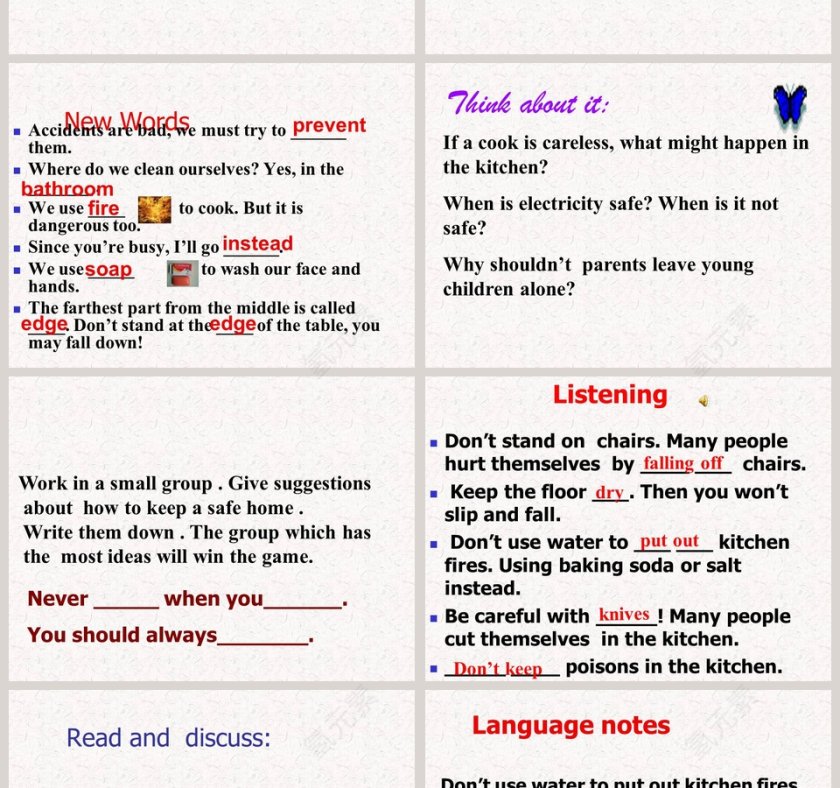 New Words
Accidents are bad, we must try to prevent
them.
Where do we clean ourselves? Yes, in the
bathroom
We use fire to cook. But it is
dangerous too.
Since you're busy, I'll go instead.
We use soap to wash our face and
hands.
The farthest part from the middle is called
edge. Don't stand at the edge of the table, you
may fall down!
Think about it:
If a cook is careless, what might happen in
the kitchen?
When is electricity safe? When is it not
safe?
Why shouldn't parents leave young
children alone?
Work in a small group . Give suggestions
about how to keep a safe home .
Write them down . The group which has
the most ideas will win the game.
Never ______ when you_______.
You should always________.
Listening
Don't stand on chairs. Many people
hurt themselves by falling off chairs.
Keep the floor dry. Then you won't
slip and fall.
Don't use water to put out kitchen
fires. Using baking soda or salt
instead.
Be careful with knives! Many people
cut themselves in the kitchen.
Don't keep poisons in the kitchen.
Read and discuss:
Language notes
Don't use water to put out kitchen fires
氢元素
氢元素
氢元素
氢元素